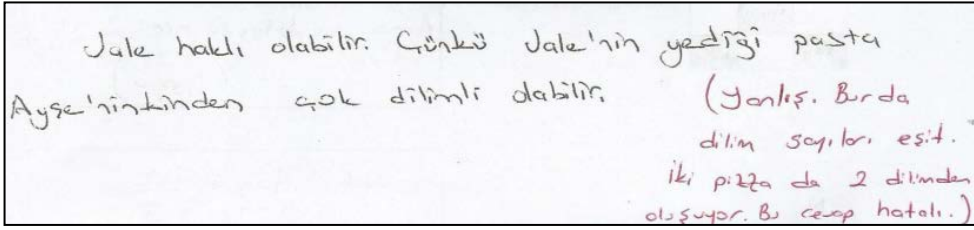 Jale haklı olabilir. Çünkü Jale'nin yediği pasta
Ayşe'ninkinden çok dilimli olabilir.
(Yanlış. Burda
dilim sayıları eşit.
İki pizza da 2 dilimden
oluşuyor. Bu cevap hatalı.)